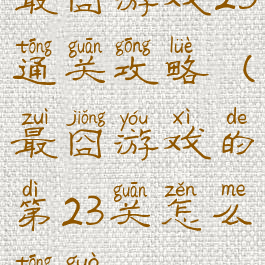 最囧游戏23
tōng guān gōng lüè
通关攻略（
zuì jiǒng yóu xì de
最囧游戏的
dì guān zěn me
第23关怎么
tōng guò